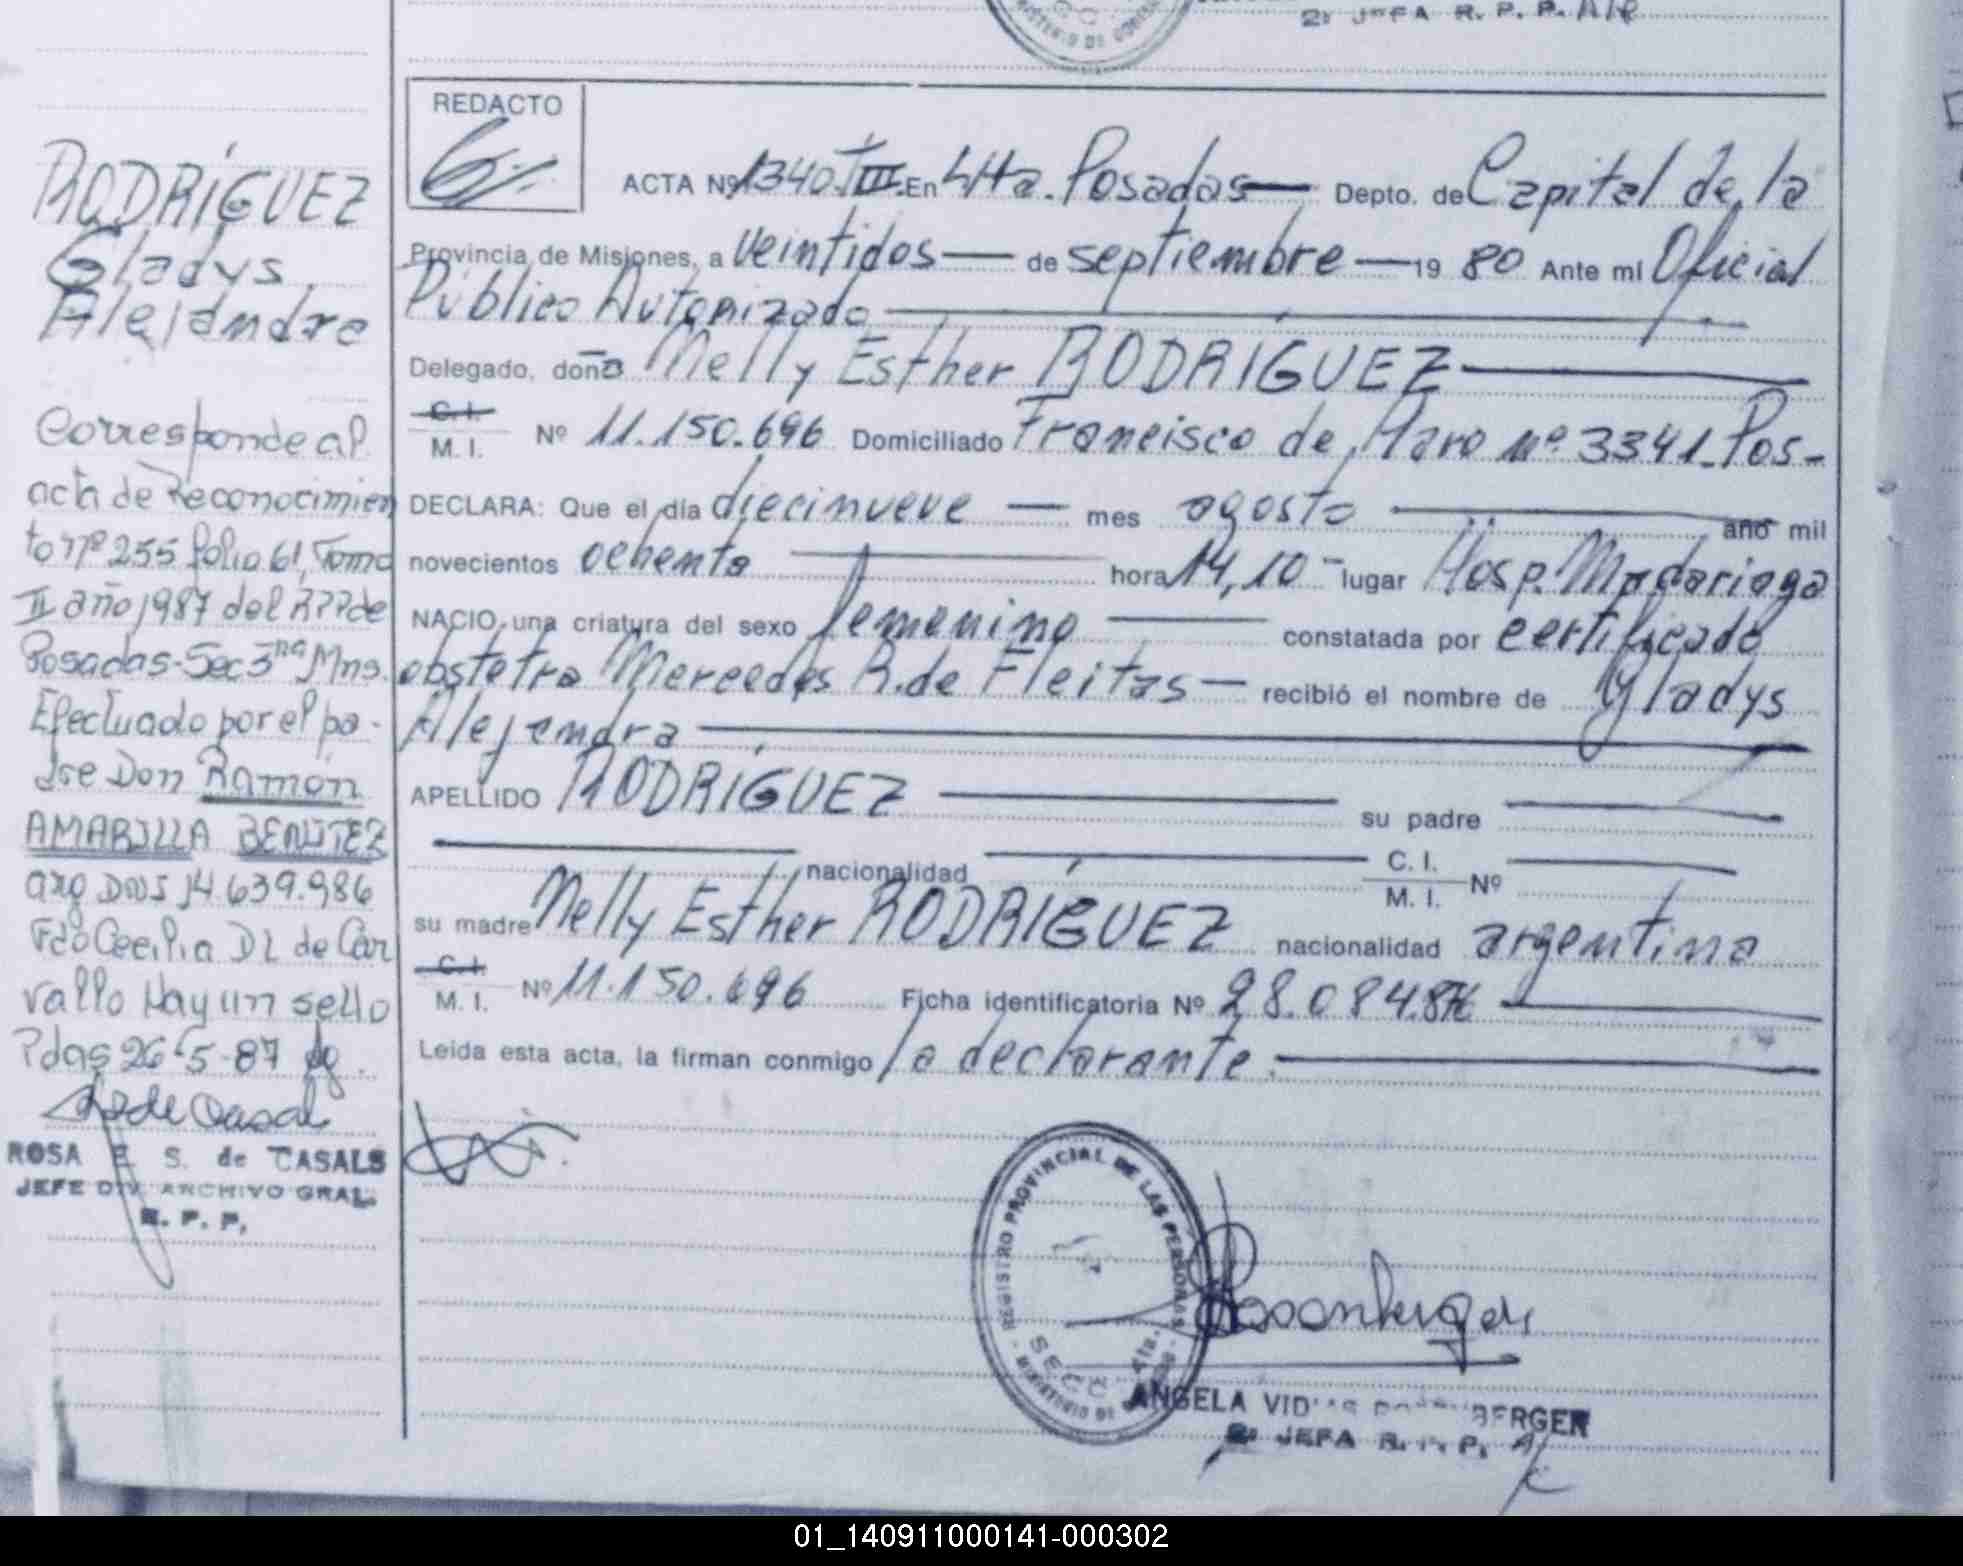 2ª JEFA R. P. P. A/C
REDACTO
RODRÍGUEZ
Gladys
Alejandra
Corresponde al
acta de Reconocimien
to Nº 255 folio 61, Tomo
II año 1987 del RPP de
Posadas-Sec 3ra Mns.
Efectuado por el pa-
dre Don Ramón
AMARILLA BENITEZ
arg DNI 14.639.986
Fdo Cecilia D L de Car
vallo Hay un sello
Pdas 26-5-87
ROSA E. S. de CASALS
JEFE DIV. ARCHIVO GRAL.
R. P. P.
ACTA Nº 1340 T III. En 4ta. Posadas — Depto. de Capital de la
Provincia de Misiones, a veintidos — de septiembre — 19 80 Ante mi Oficial
Público Autorizado
Delegado, doña Nelly Esther RODRÍGUEZ
C. I.
M. I. Nº 11.150.696 Domiciliado Francisco de Haro nº 3341-Pos-
DECLARA: Que el día diecinueve — mes agosto año mil
novecientos ochenta hora 14,10 - lugar Hosp. Madariaga
NACIO una criatura del sexo femenino constatada por certificado
obstetra Mercedes R. de Fleitas — recibió el nombre de Gladys
Alejandra
APELLIDO RODRÍGUEZ su padre
nacionalidad C. I.
M. I. Nº
su madre Nelly Esther RODRÍGUEZ nacionalidad argentina
C. I.
M. I. Nº 11.150.696 Ficha identificatoria Nº 28.084.876
Leida esta acta, la firman conmigo la declarante.
REGISTRO PROVINCIAL DE LAS PERSONAS
SECC. 4ta.
MINISTERIO DE GOBIERNO
ANGELA
BERGER
2ª JEFA R. P. P. A/C
01_140911000141-000302